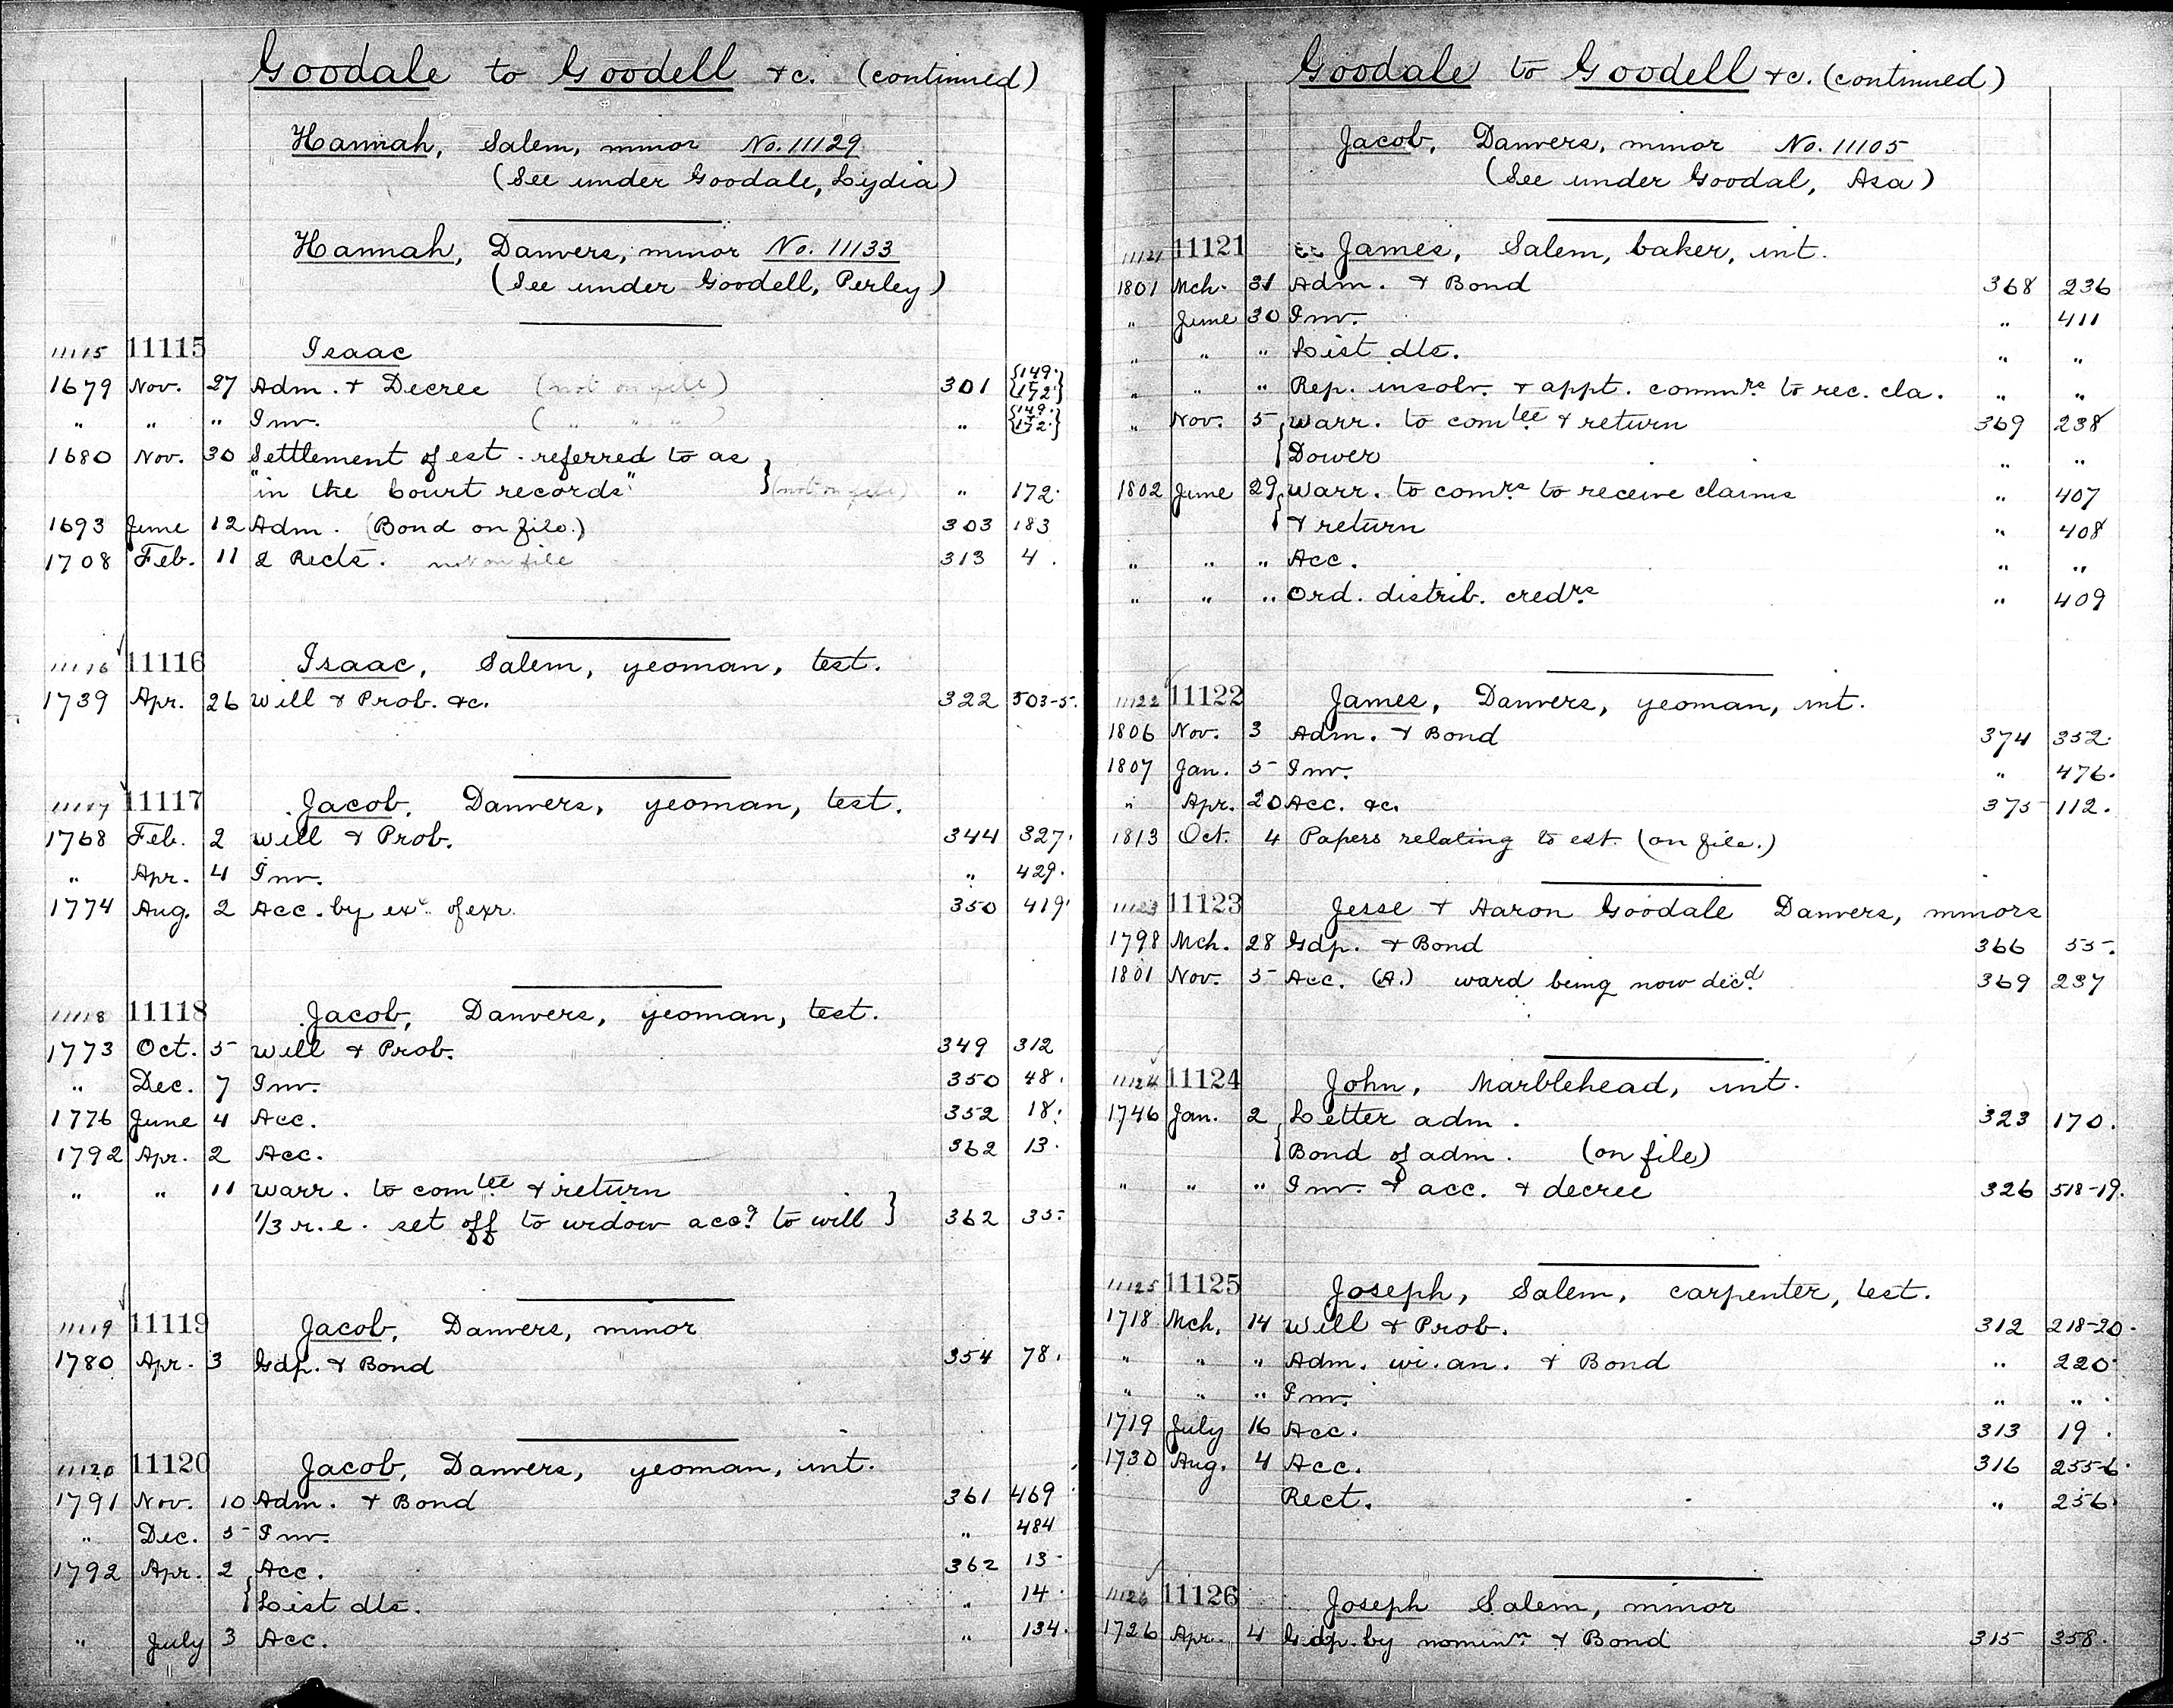 Goodale to Goodell &c. (continued)
Hannah, Salem, minor No. 11129
(See under Goodale, Lydia)
Hannah, Danvers, minor No. 11133
(See under Goodell, Perley)
11115 11115 Isaac
1679 Nov. 27 Adm. & Decree (not on file) 301 {149. 172.}
" " " Inv. ( " " " ) " {149. 172.}
1680 Nov. 30 Settlement of est. referred to as
"in the Court records" } (not on file) " 172.
1693 June 12 Adm. (Bond on file.) 303 183
1708 Feb. 11 2 Rects. not on file 313 4.
11116 11116 Isaac, Salem, yeoman, test.
1739 Apr. 26 Will & Prob. &c. 322 503-5.
11117 11117 Jacob, Danvers, yeoman, test.
1768 Feb. 2 Will & Prob. 344 327.
" Apr. 4 Inv. " 429.
1774 Aug. 2 Acc. by exr. of exr. 350 419.
11118 11118 Jacob, Danvers, yeoman, test.
1773 Oct. 5 Will & Prob. 349 312
" Dec. 7 Inv. 350 48.
1776 June 4 Acc. 352 18.
1792 Apr. 2 Acc. 362 13.
" " 11 Warr. to comtee & return
1/3 r.e. set off to widow accg to will } 362 35.
11119 11119 Jacob, Danvers, minor
1780 Apr. 3 Gdp. & Bond 354 78.
11120 11120 Jacob, Danvers, yeoman, int.
1791 Nov. 10 Adm. & Bond 361 469
" Dec. 5 Inv. " 484
1792 Apr. 2 Acc. 362 13.
{List dts. " 14.
" July 3 Acc. " 134.
Goodale to Goodell &c. (continued)
Jacob, Danvers, minor No. 11105
(See under Goodal, Asa)
11121 11121 James, Salem, baker, int.
1801 Mch. 31 Adm. & Bond 368 236
" June 30 Inv. " 411
" " " List dts. " "
" " " Rep. insolv. & appt. commrs to rec. cla. " "
" Nov. 5 {Warr. to comtee & return 369 238
Dower " "
1802 June 29 {Warr. to comrs to receive claims " 407
& return " 408
" " " Acc. " "
" " " Ord. distrib. credrs " 409
11122 11122 James, Danvers, yeoman, int.
1806 Nov. 3 Adm. & Bond 374 352.
1807 Jan. 5 Inv. " 476.
" Apr. 20 Acc. &c. 375 112.
1813 Oct. 4 Papers relating to est. (on file.)
11123 11123 Jesse & Aaron Goodale Danvers, minors
1798 Mch. 28 Gdp. & Bond 366 55.
1801 Nov. 5 Acc. (A.) ward being now decd. 369 237
11124 11124 John, Marblehead, int.
1746 Jan. 2 {Letter adm. 323 170.
Bond of adm. (on file)
" " " Inv. & acc. & decree 326 518-19.
11125 11125 Joseph, Salem, carpenter, test.
1718 Mch. 14 Will & Prob. 312 218-20.
" " " Adm. wi. an. & Bond " 220.
" " " Inv. " ".
1719 July 16 Acc. 313 19.
1730 Aug. 4 Acc. 316 255-6.
Rect. " 256.
11126 11126 Joseph Salem, minor
1726 Apr. 4 Gdp. by nominn & Bond 315 358.